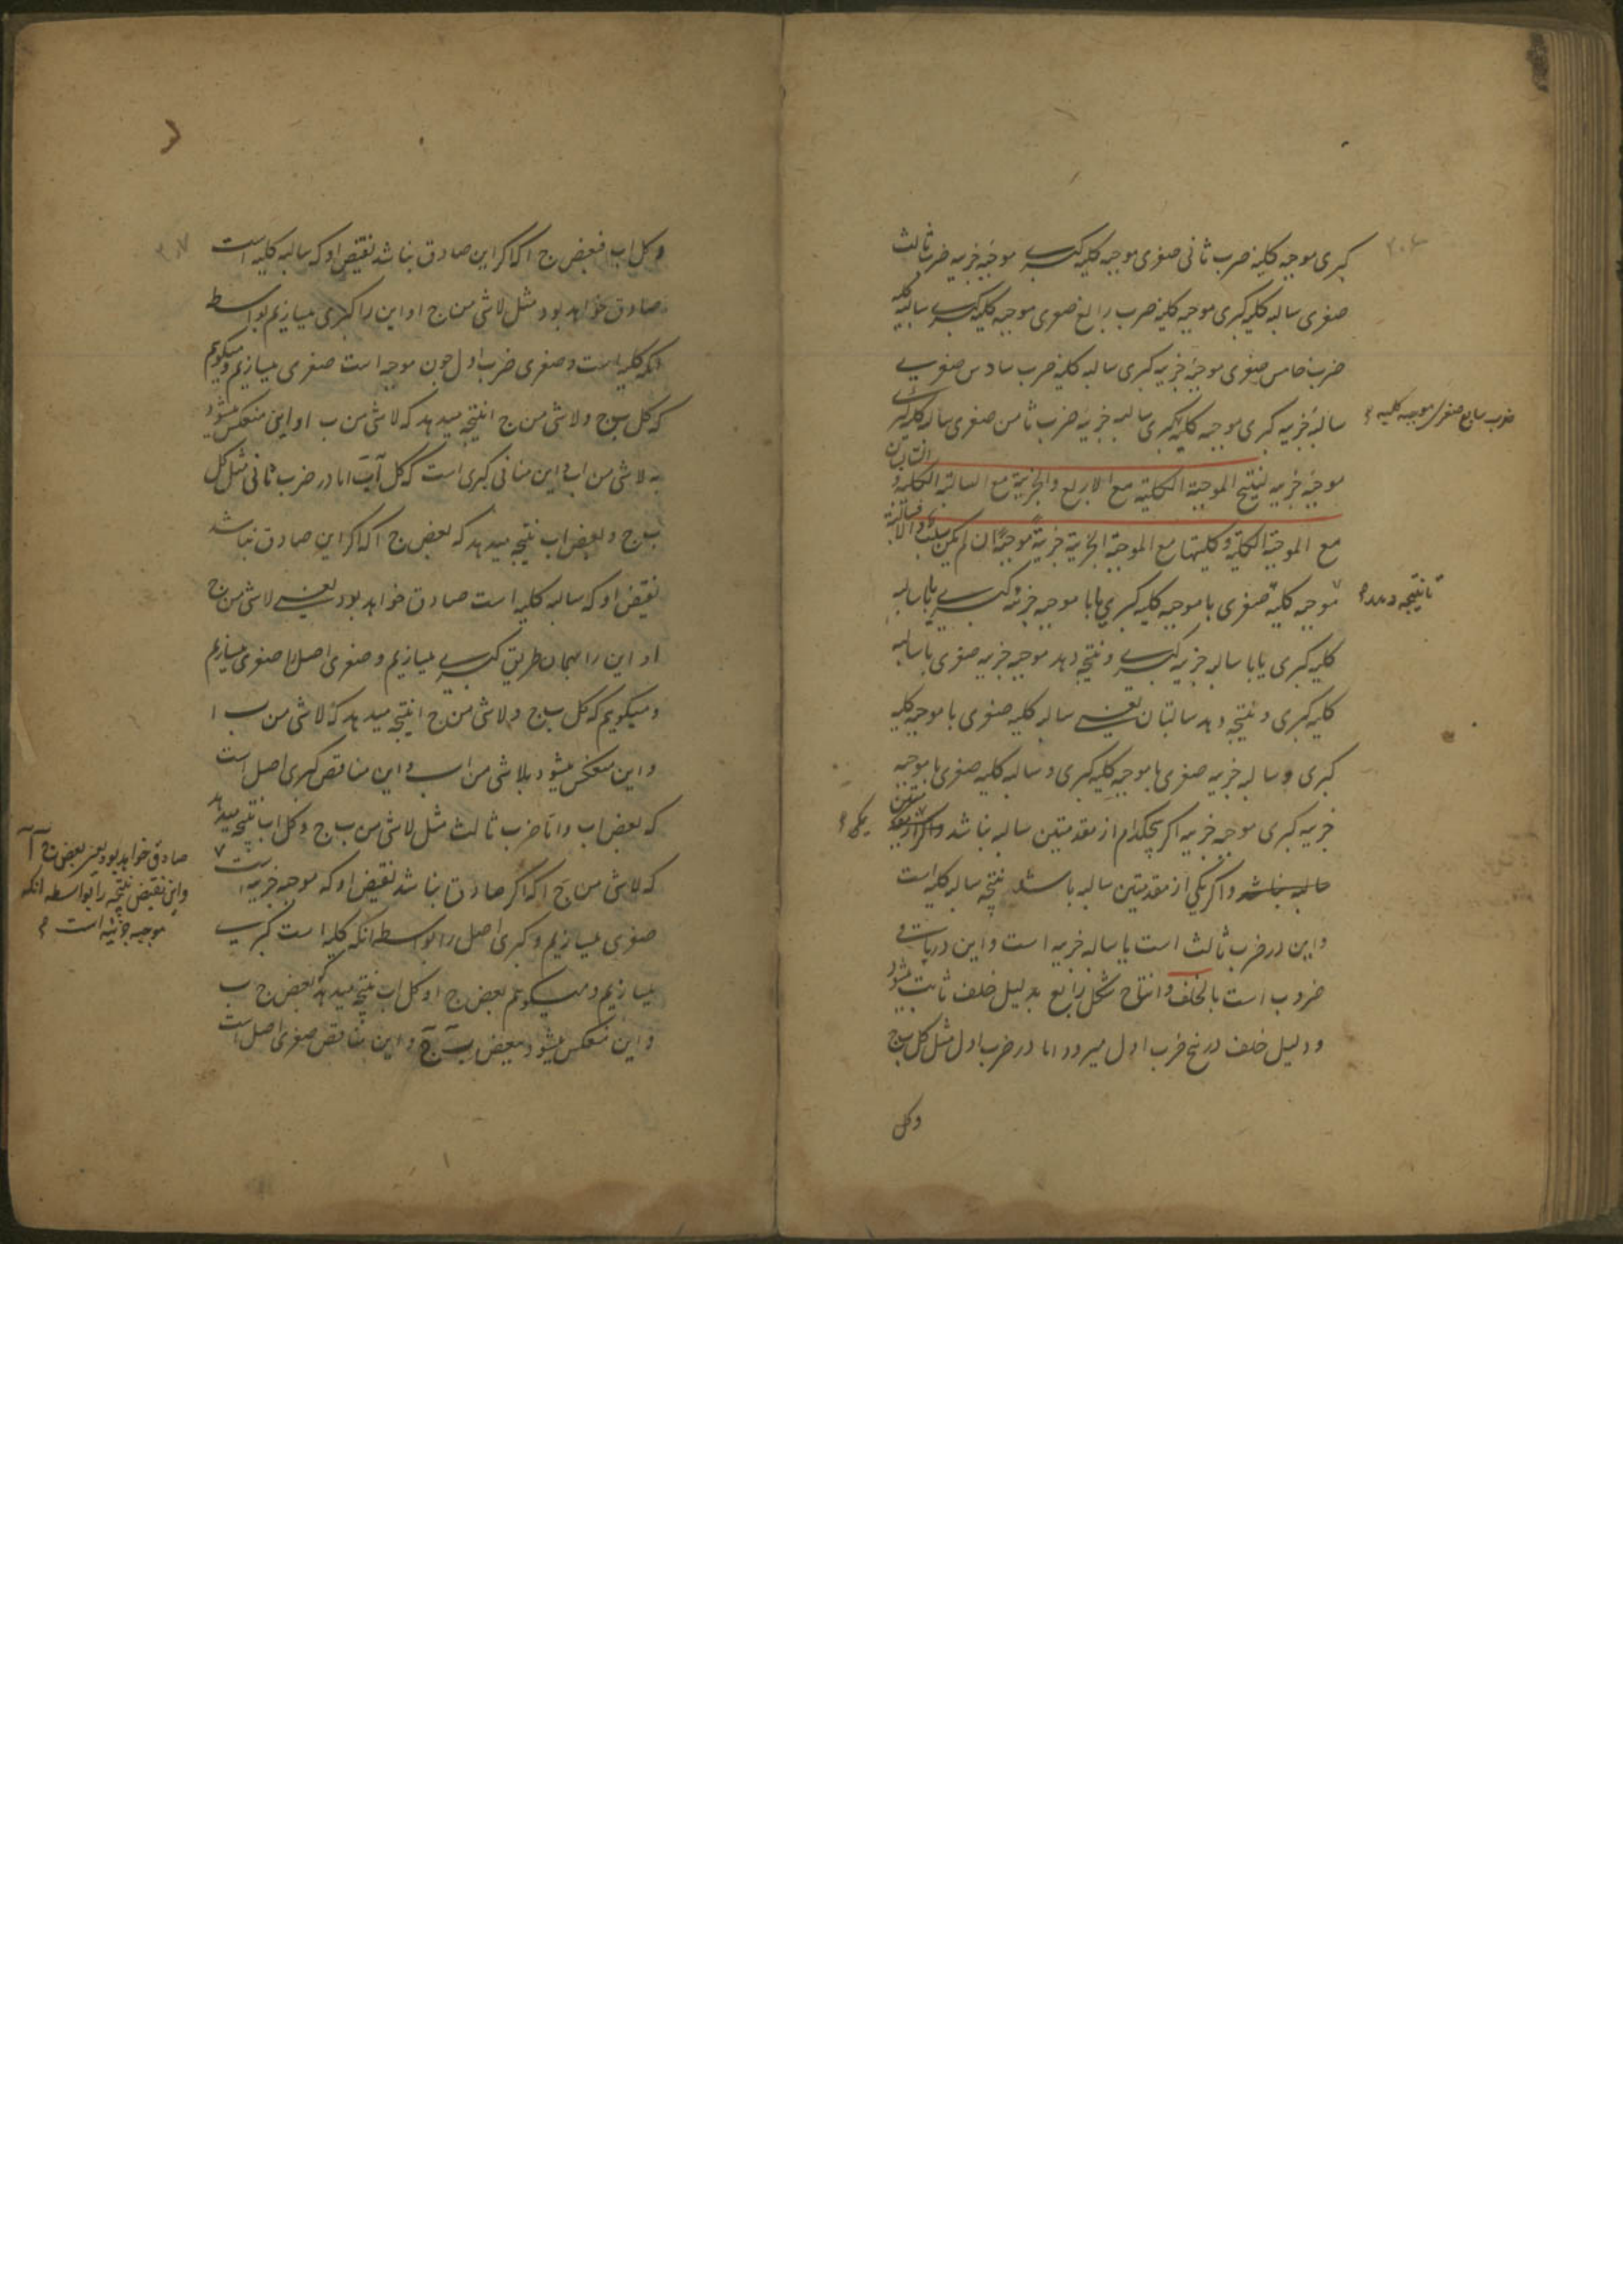 کبری موجبه کلیه ضرب ثانی صغری موجبه کلیه کبری موجبه جزییه ضرب ثالث
صغری سالبه کلیه کبری موجبه کلیه ضرب رابع صغری موجبه کلیه کبری سالبه کلیه
ضرب خامس صغری موجبه جزییه کبری سالبه کلیه ضرب سادس صغری
سالبه جزییه کبری موجبه کلیه کبری سالبه جزییه ضرب ثامن صغری سالبه کلیه کبری
ضرب سابع صغری موجبه کلیه
موجبه جزییه لینتج الموجبة الکلیة مع الاربع والجزییة مع السالبة الکلیة و السالبتان
مع الموجبة الکلیة وکلیتها مع الموجبة الجزییة جزییة موجبة ان لم یکن بسلب والا فسالبة
موجبه کلیه صغری با موجبه کلیه کبری یا با موجبه جزییه کبری یا با سالبه
تا نتیجه دهد
کلیه کبری یا با سالبه جزییه کبری و نتیجه دهد موجبه جزییه صغری با سالبه
کلیه کبری و نتیجه دهد سالبتان یعنی سالبه کلیه صغری با موجبه کلیه
کبری و سالبه جزییه صغری با موجبه کلیه کبری و سالبه کلیه صغری با موجبه
جزییه کبری موجبه جزییه اکر هیچکدام از مقدمتین سالبه نباشد
سالبه نباشد و اکر یکی از مقدمتین سالبه باشد نتیجه سالبه کلیه است
و این در ضرب ثالث است یا سالبه جزییه است و این در باقی
ضروب است بالخلف و انتاج شکل رابع بدلیل خلف ثابت میشود
و دلیل خلف در پنج ضرب اول میرود اما در ضرب اول مثل کل ب ج
وکل
وکل اب فبعض ج ا که اکر این صادق نباشد نقیض او که سالبه کلیه است
صادق خواهد بود مثل لاشی من ج ا و این را کبری میسازیم بواسطه
آنکه کلیه است و صغری ضرب اول چون موجبه است صغری میسازیم و میکویم
که کل ب ج و لاشی من ج ا نتیجه میدهد که لاشی من ب ا و این منعکس میشود
به لاشی من اب و این منافی کبری است که کل آب اما در ضرب ثانی مثل کل
ب ج و بعض اب نتیجه میدهد که بعض ج ا که اکر این صادق نباشد
نقیض او که سالبه کلیه است صادق خواهد بود یعنی لاشی من ج
ا و این را بهمان طریق کبری میسازیم و صغری اصل را صغری میسازیم
و میکویم که کل ب ج و لاشی من ج ا نتیجه میدهد که لاشی من ب ا
و این منعکس میشود بلاشی من اب و این مناقض کبری اصل است
که بعض اب و اما ضرب ثالث مثل لاشی من ب ج و کل اب نتیجه میدهد
که لاشی من ج ا که اکر صادق نباشد نقیض او که موجبه جزییه است
صادق خواهد بود یعنی بعض ج آ
و این نقیض نتیجه را بواسطه انکه
موجبه جزئیه است
صغری میسازیم و کبری اصل را بواسطه انکه کلیه است کبری
میسازیم و میکویم بعض ج ا و کل اب نتیجه میدهد که بعض ج ب
و این منعکس میشود ببعض ب ج و این مناقض صغری اصل است